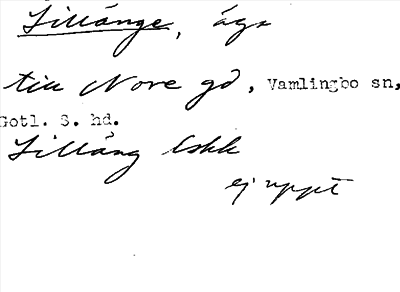 Lillänge, äga
till Nore gd, Vamlingbo sn,
Gotl. S. hd.
Lilläng Eskk
ej uppt